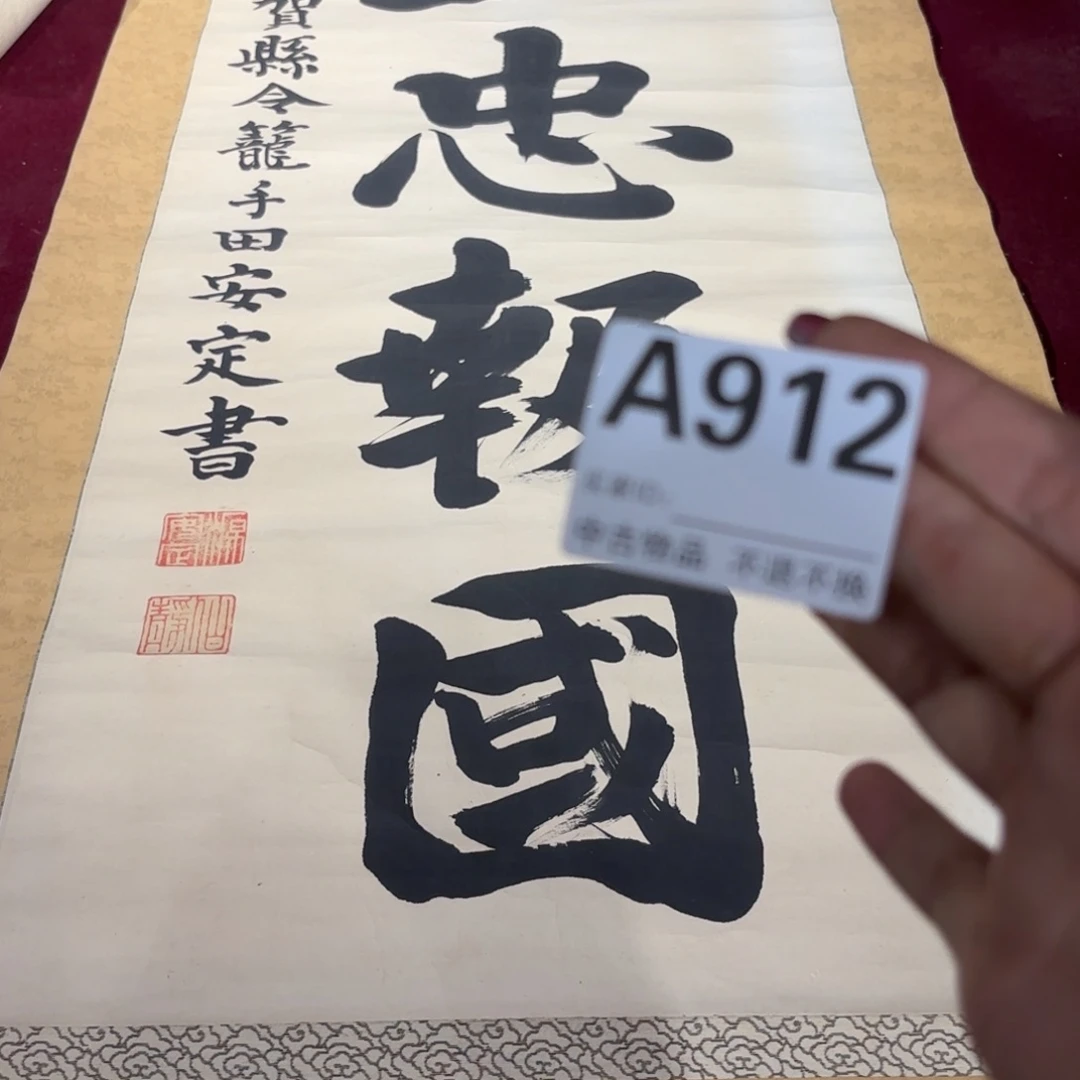 忠報國
賀縣令籠手田安定書
A912
中古物品 不退不換